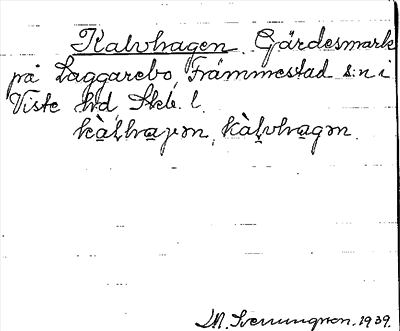 Kalvhagen. Gärdesmark
på Laggarebo, Främmestad s:n i
Viste hd, Skb. l.
kàl̬hag̬ən, kàl̬vhagən.
M. Sverrungson. 1939.